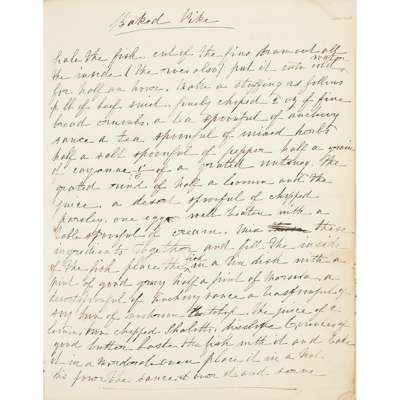 Baked Pike
Scale the fish cut of the fins Draw out all
the inside (the roes also) put it into cold water
for half an hour. Make a stuffing as follows
lb of beef suet, finely chiped 2 oz of fine
bread crumbs. a tea spoonful of anchovy
sauce a tea spoonful of mixed herbs
half a salt spoonful of pepper half a grain
of cayanne of a grated nutmeg. the
grated rind of half a lemon and the
juice, a desert spoonful of chipped
parsley, one egg well beaten with a
table spoonful of cream. Mix these
ingredients together and fill the inside
of the fish place the fish in a tin dish with a
pint of good gravy half a pint of Marsala, a
desertspoonful of Anchovy sauce a teaspoonful of
any kind of the juice of a
lemon, two chipped Shalotts, dissolve 6 ounces of
good butter baste the fish with it and bake
it in a moderate oven place it in a hot
dis pour the sauce and serve